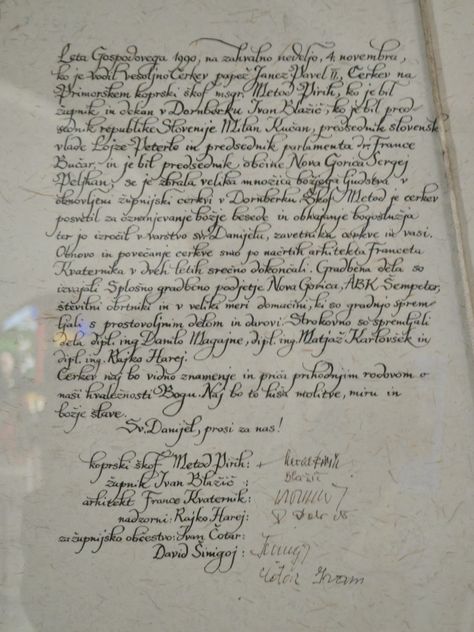 Leta Gospodovega 1990, na zahvalno nedeljo, 4. novembra,
ko je vodil vesoljno Cerkev papež Janez Pavel II., Cerkev na
Primorskem koprski škof msgr. Metod Pirih, ko je bil
župnik in dekan v Dornberku Ivan Blažič, ko je bil pred-
sednik republike Slovenije Milan Kučan, predsednik slovensk
vlade Lojze Peterle in predsednik parlamenta dr. France
Bučar, in je bil predsednik občine Nova Gorica Sergej
Pelhan, se je zbrala velika množica božjega ljudstva v
obnovljeni župnijski cerkvi v Dornberku. Škof Metod je cerkev
posvetil za oznanjevanje božje besede in obhajanje bogoslužja
ter jo izročil v varstvo sv. Danijelu, zavetniku cerkve in vasi.
Obnovo in povečanje cerkve smo po načrtih arhitekta Franceta
Kvaternika v dveh letih srečno dokončali. Gradbena dela so
izvajali: Splošno gradbeno podjetje Nova Gorica, ABK Šempeter,
številni obrtniki in v veliki meri domačini, ki so gradnjo sprem-
ljali s prostovoljnim delom in darovi. Strokovno so spremljali
dela dipl. ing. Danilo Magajne, dipl. ing. Matjaž Karlovšek in
dipl. ing. Rajko Harej.
Cerkev naj bo vidno znamenje in priča prihodnjim rodovom o
naši hvaležnosti Bogu. Naj bo to hiša molitve, miru in
božje slave.
Sv. Danijel, prosi za nas!
koprski škof Metod Pirih: +
župnik Ivan Blažič : Blažič
arhitekt France Kvaternik:
nadzorni: Rajko Harej:
za župnijsko občestvo: Ivan Čotar:
David Šinigoj :
Čotar Ivan